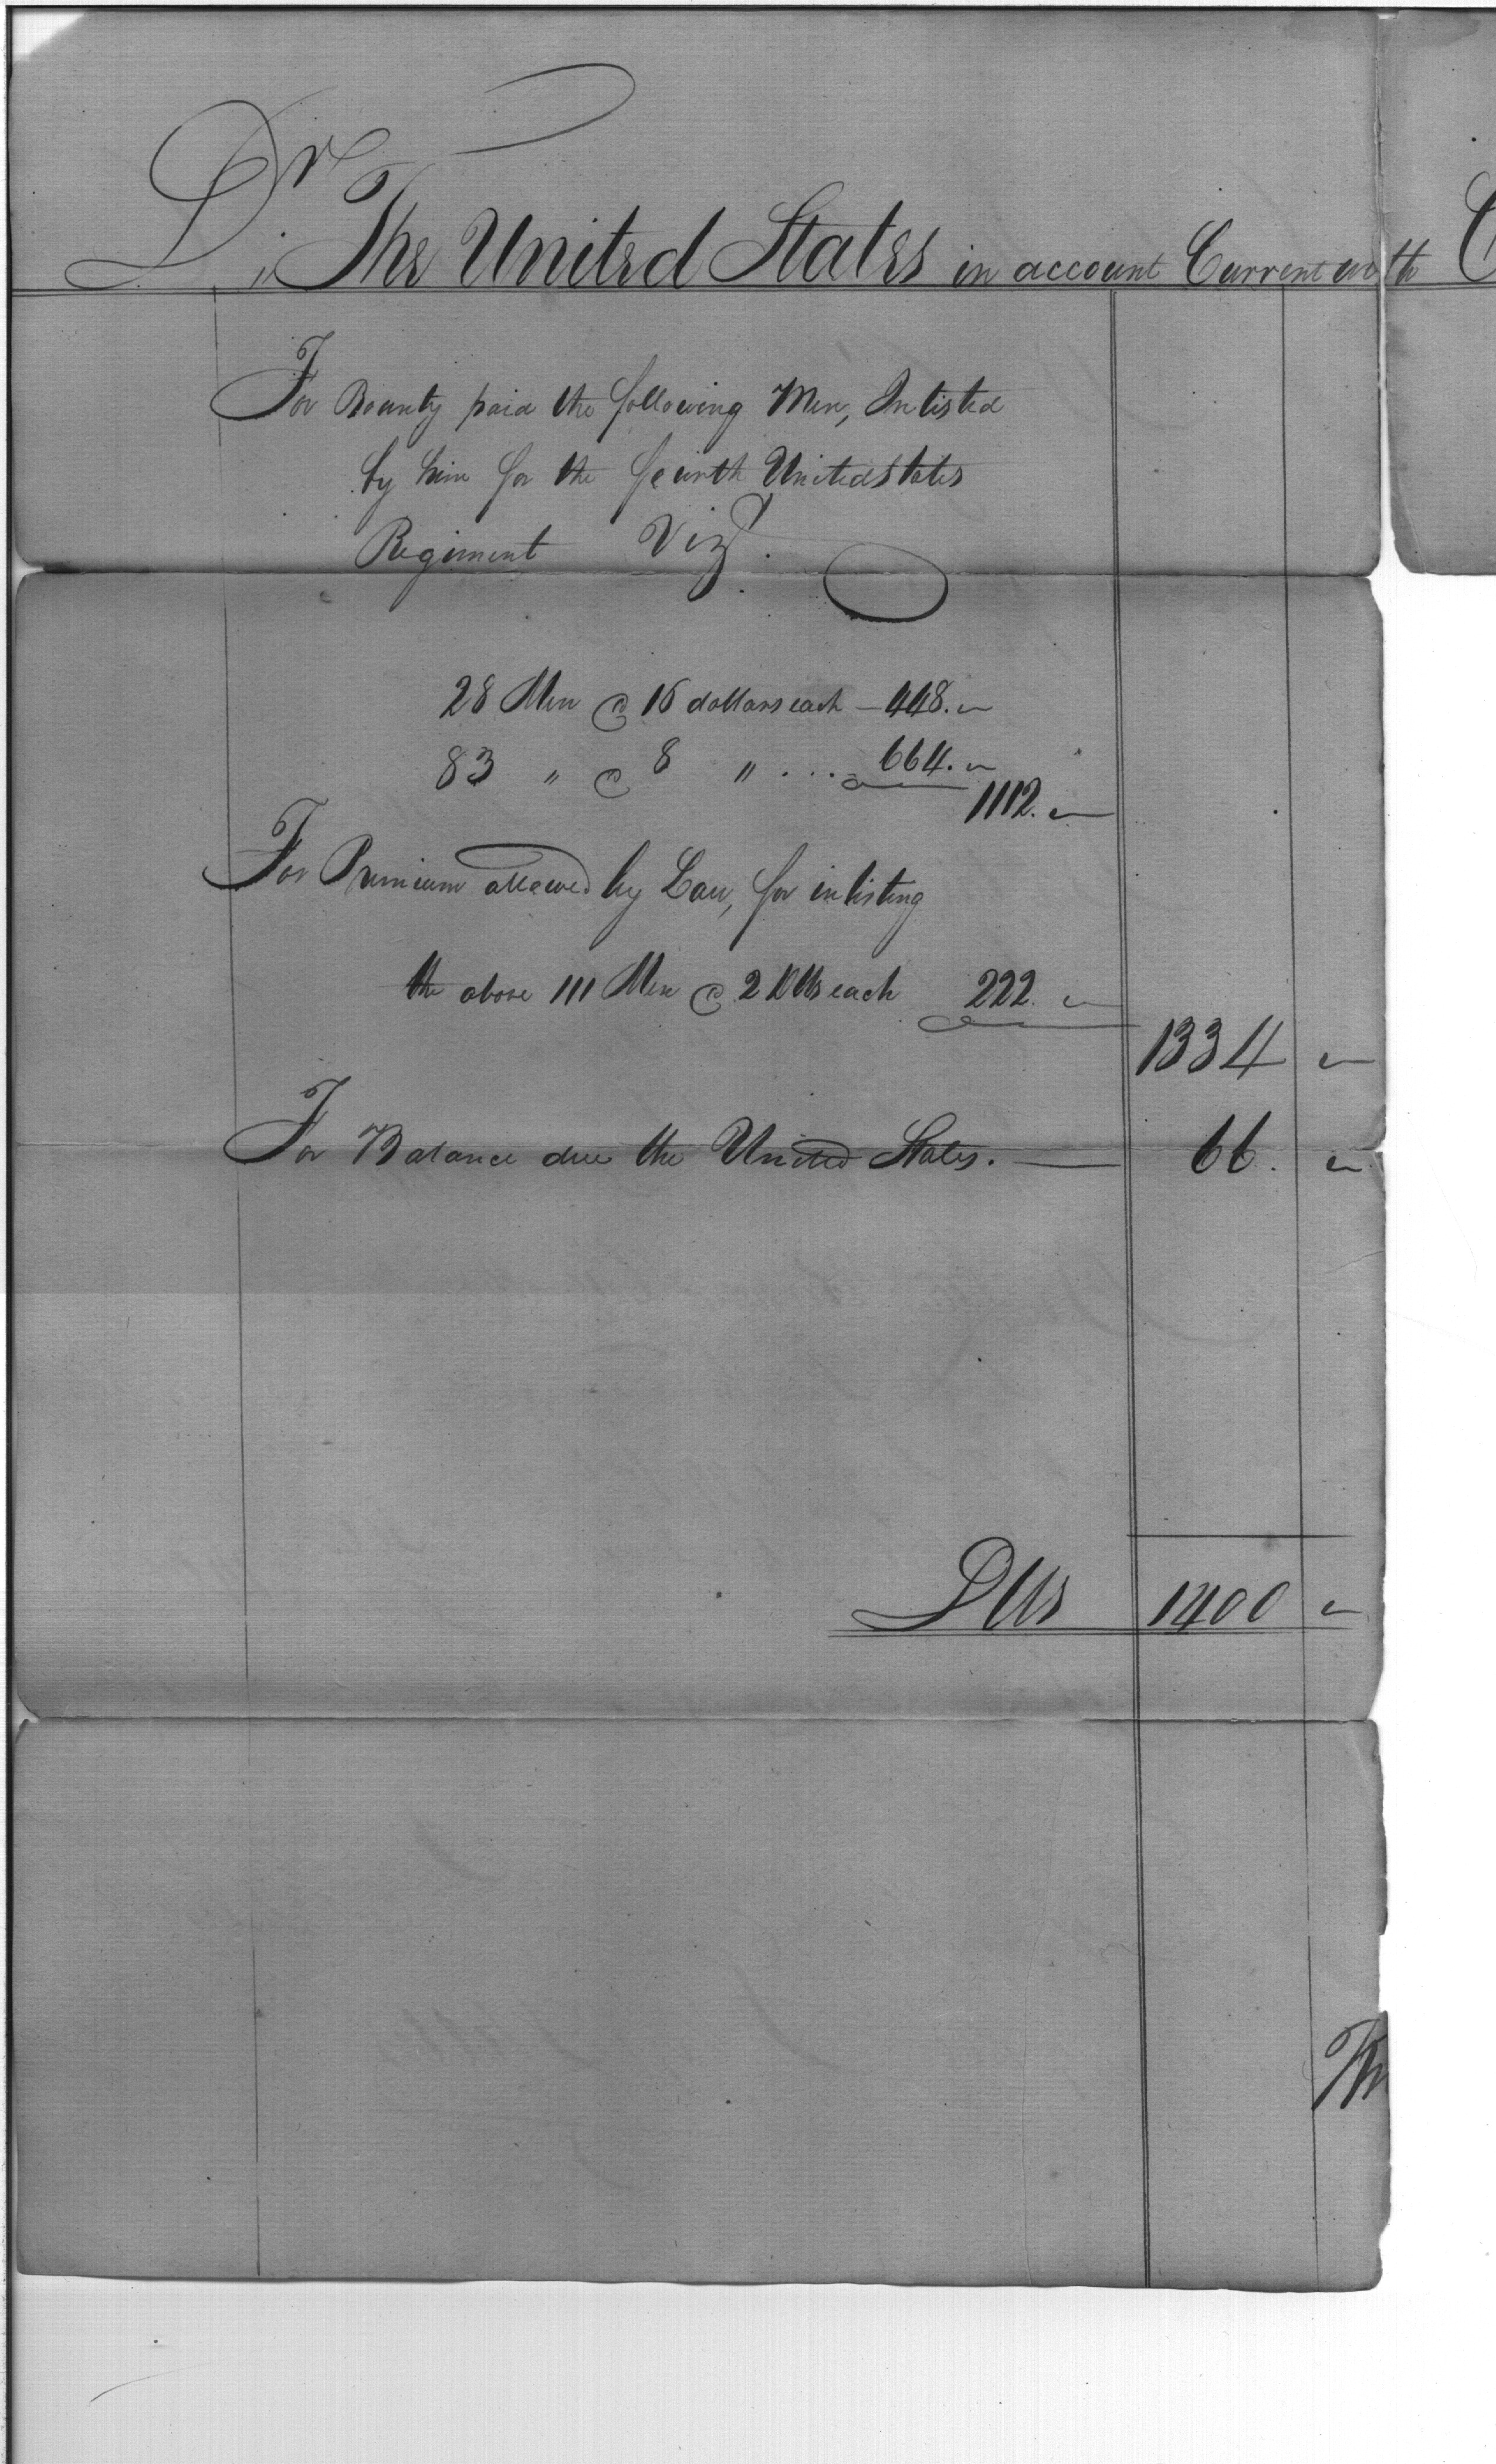 Dr. The United States in account Current with C
For Bounty paid the following Men, Inlisted
by him for the fourth United States
Regiment Vizt.
28 Men @ 16 dollars each — 448. "
83 " @ 8 " ... 664. "
1112. "
For Premium allowed by Law, for inlisting
the above 111 Men @ 2 Dlls each 222. "
1334 "
For Balance due the United States. — 66. "
Dlls 1400 "